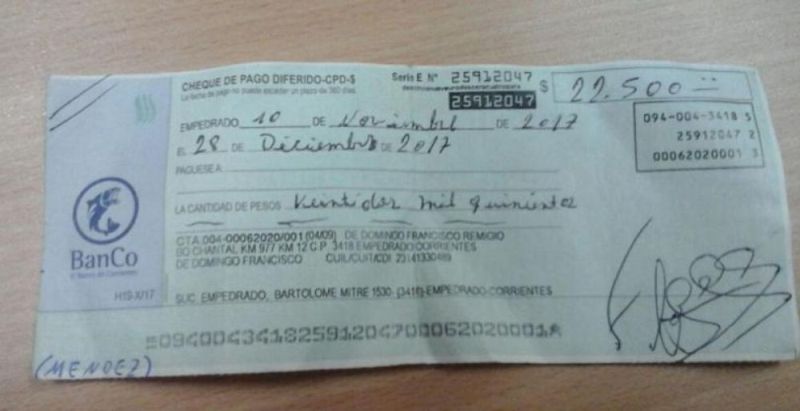 CHEQUE DE PAGO DIFERIDO-CPD-$
La fecha de pago no puede exceder un plazo de 360 días.
Serie E N° 25912047
25912047
$ 22.500 =
094-004-3418 5
25912047 2
00062020001 3
EMPEDRADO 10 DE Noviembre DE 2017
EL 28 DE Diciembre DE 2017
PAGUESE A:
LA CANTIDAD DE PESOS Veintidos mil quinientos
CTA 004-00062020/001 (04/09) DE DOMINGO FRANCISCO REMIGIO
BO CHANTAL KM 977 KM 12 C.P. 3418 EMPEDRADO CORRIENTES
DE DOMINGO FRANCISCO CUIL/CUIT/CDI 23141330489
BanCo
El Banco de Corrientes
H1S-X/17
SUC. EMPEDRADO, BARTOLOME MITRE 1530 (3416)-EMPEDRADO-CORRIENTES
09400434182591204700062020001
(MENDEZ)